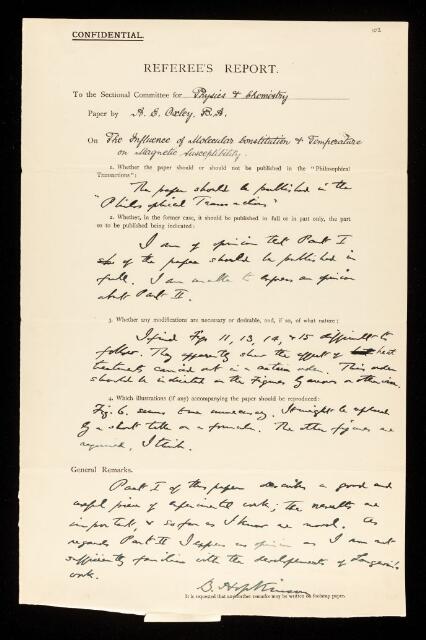 102
CONFIDENTIAL.
REFEREE'S REPORT.
To the Sectional Committee for Physics & Chemistry
Paper by A. E. Oxley, B.A.
On The Influence of Molecular Constitution & Temperature
on Magnetic Susceptibility.
1. Whether the paper should or should not be published in the "Philosophical
Transactions":
The paper should be published in the
"Philosophical Transactions"
2. Whether, in the former case, it should be published in full or in part only, the part
so to be published being indicated:
I am of opinion that Part I
of the paper should be published in
full. I am unable to express an opinion
about Part II.
3. Whether any modifications are necessary or desirable, and, if so, of what nature:
I find Figs 11, 13, 14, & 15 difficult to
follow. They apparently show the effect of heat
treatments carried out in a certain order. This order
should be indicated on the Figures by arrows or otherwise.
4. Which illustrations (if any) accompanying the paper should be reproduced:
Fig. 6. seems to me unnecessary. It might be replaced
by a short table or a formula. The other figures are
required, I think.
General Remarks.
Part I of this paper describes a good and
useful piece of experimental work; the results are
important, & so far as I know are novel. As
regards Part II I express no opinion as I am not
sufficiently familiar with the developments of Langevin's
work.
B. Hopkinson
It is requested that any further remarks may be written on foolscap paper.